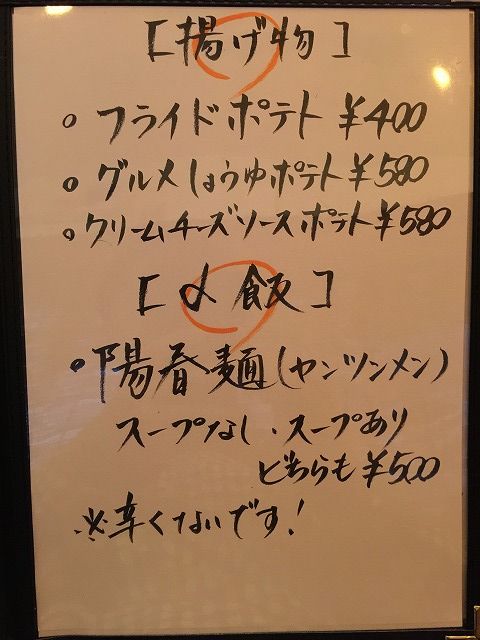 [揚げ物]
○ フライドポテト ¥400
○ グルメしょうゆポテト ¥580
○ クリームチーズソースポテト ¥580
[〆飯]
○ 陽春麺(ヤンツンメン)
スープなし・スープあり
どちらも ¥500
※辛くないです!